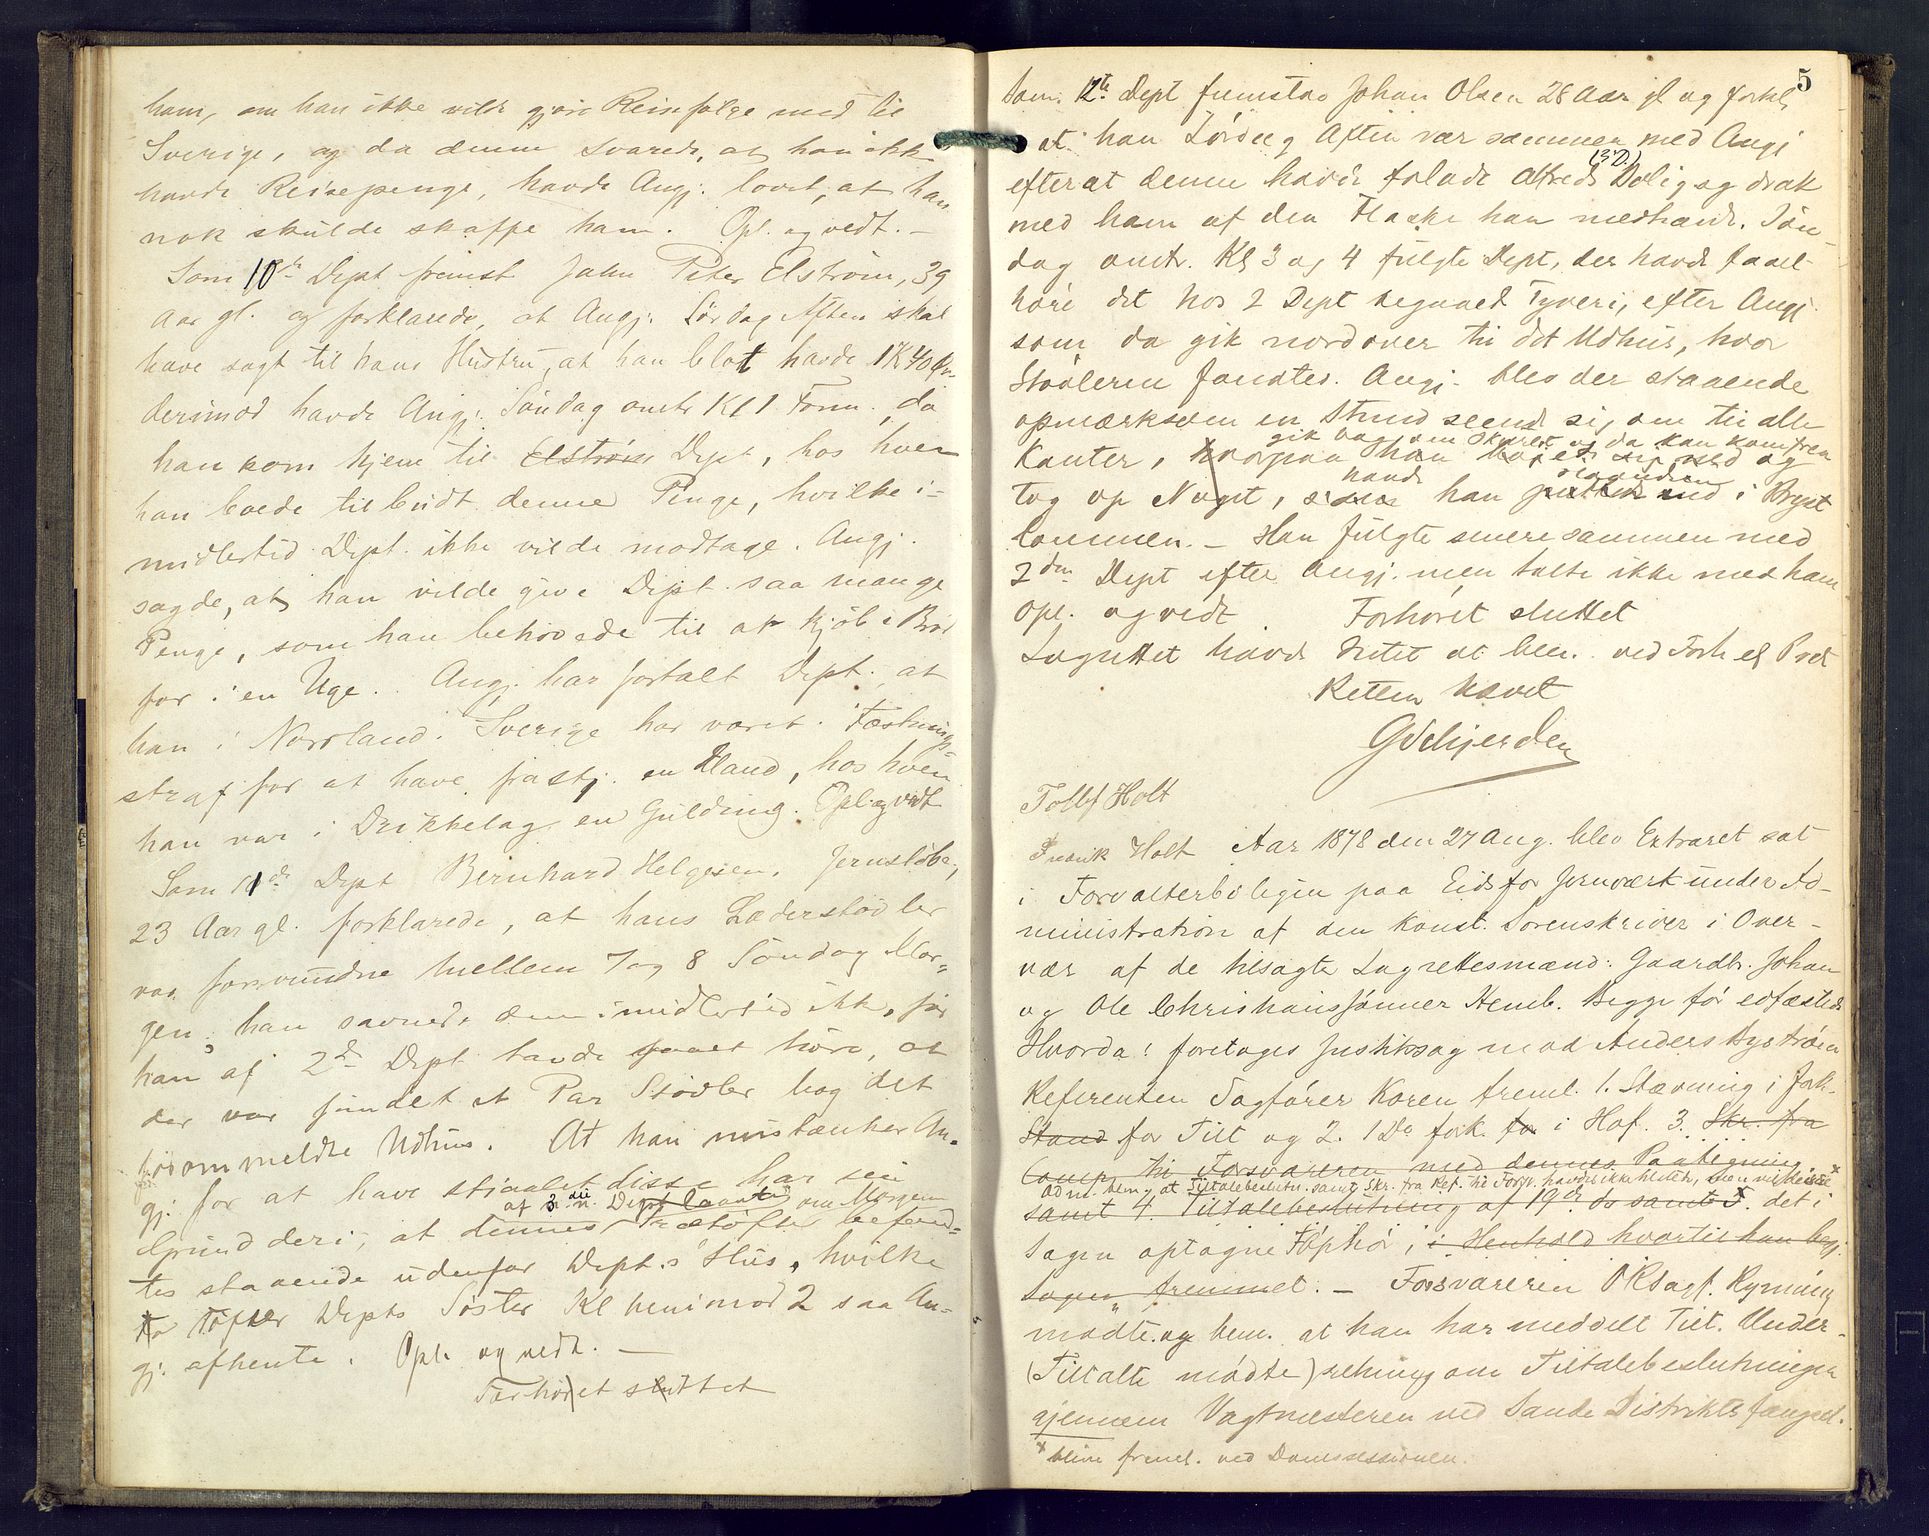 ham, om han ikke vilde gjøre Reisefølge med til
Sverige, og da denne svarede, at han ikke
havde Reisepenge, havde Angj. lovet, at han
nok skulde skaffe ham. Opl. og vedt. —
Som 10de Dept fremst John Peter Elstrøm, 39
Aar gl. og forklarede, at Angj. Lørdag Aften skal
have sagt til hans Hustru, at han blot havde 1 K 40 Ør.
derimod havde Angj. Søndag omtr Kl 1 Form. da
han kom hjem til Elstrøm Dept, hos hvem
han boede tilbudt denne Penge, hvilke i-
midlertid Dept. ikke vilde modtage. Angj.
sagde, at han vilde give Dept. saa mange
Penge, som han behøvede til at kjøbe Brød
for i en Uge. Angj. har fortalt Dept. at
han i Norrland i Sverige har været i Fæstnings-
straf for at have frastj. en Mand, hos hvem
han var i Drikkelag en Guldring. Opl. og vedt
Som 11de Dept Bernhard Helgesen, Jernstøber,
23 Aar gl. forklarede, at hans Læderstøvler
var forsvundne mellem 7 og 8 Søndag Mor-
gen, han savnede dem imidlertid ikke, før
han af 2de Dept havde faaet høre, at
der var fundet et Par Støvler bag det
forommeldte Udhus. At han mistænker An-
gj. for at have stjaalet disse har sin
af 3die Dept laante om Morgen
Grund deri, at dennes Trætøfler befand-
tes staaende udenfor Dept.s Hus, hvilke
Tøfler Depts Søster Kl henimod 2 saa An-
gj. afhente. Opl. og vedt. —
Forhøret sluttet
5
Som 12te Dept fremstod Johan Olsen 28 Aar gl og forkl,
at han Lørdag Aften var sammen med Angj
(3 D.)
efterat denne havde forladt Alfreds Bolig og drak
med ham af den Flaske han medhavde. Søn-
dag omtr. Kl 3 og 4 fulgte Dept, der havde faaet
høre det hos 2 Dept begaaede Tyveri, efter Angj.
som da gik nordover til det Udhus, hvor
Støvlerne fandtes. Angj. blev der staaende
opmærksom en Stund seende sig om til alle
gik bag om Skuret og da han kom frem
Kanter, hvorpaa han bøiede sig ned og
havde
tog op Noget, som han puttede ind i Bryst
lommen. — Han fulgte senere sammen med
2den Dept efter Angj. men talte ikke med ham
Opl. og vedt Forhøret sluttet
Lagrettet havde Intet at bem. ved Forh el Prot
Retten hævet
G Schjerden
Tolf Holt
Fredrik Holt Aar 1878 den 27 Aug. blev Extraret sat
i Forvalterboligen paa Eidsfos Jernværk under Ad-
ministration af den Konst. Sorenskriver i Over-
vær af de tilsagte Lagrettesmænd: Gaardbr. Johan
og Ole Christianssønner Hemb. Begge før edfæstede
Hvorda: foretoges Justitssag mod Anders Bystrøm
Referenten Sagfører Koren freml. 1. Stævning i fork.
Stand for Tilt og 2. 1 Do fork. for i Hof. 3. Skr. fra
Comp. til Forsvareren med dennes Paategning
odm. bem. at Tiltalebeslutn. samt Skr. fra Ref. til Forsv. havdes ikke tilstede, men vil disse *
samt 4. Tiltalebeslutning af 19de ds samt 5. det i
Sagen optagne Fophør, i Henhold hvortil han begj.
Sagen fremmet. — Forsvareren ORsagf. Ryning
mødte. og bem. at han har meddelt Tilt. Under-
(Tiltalte mødte) retning om Tiltalebeslutningen
gjennem Vagtmesteren ved Sande Distriktsfængsel.
* blive freml. ved Domssessionen.